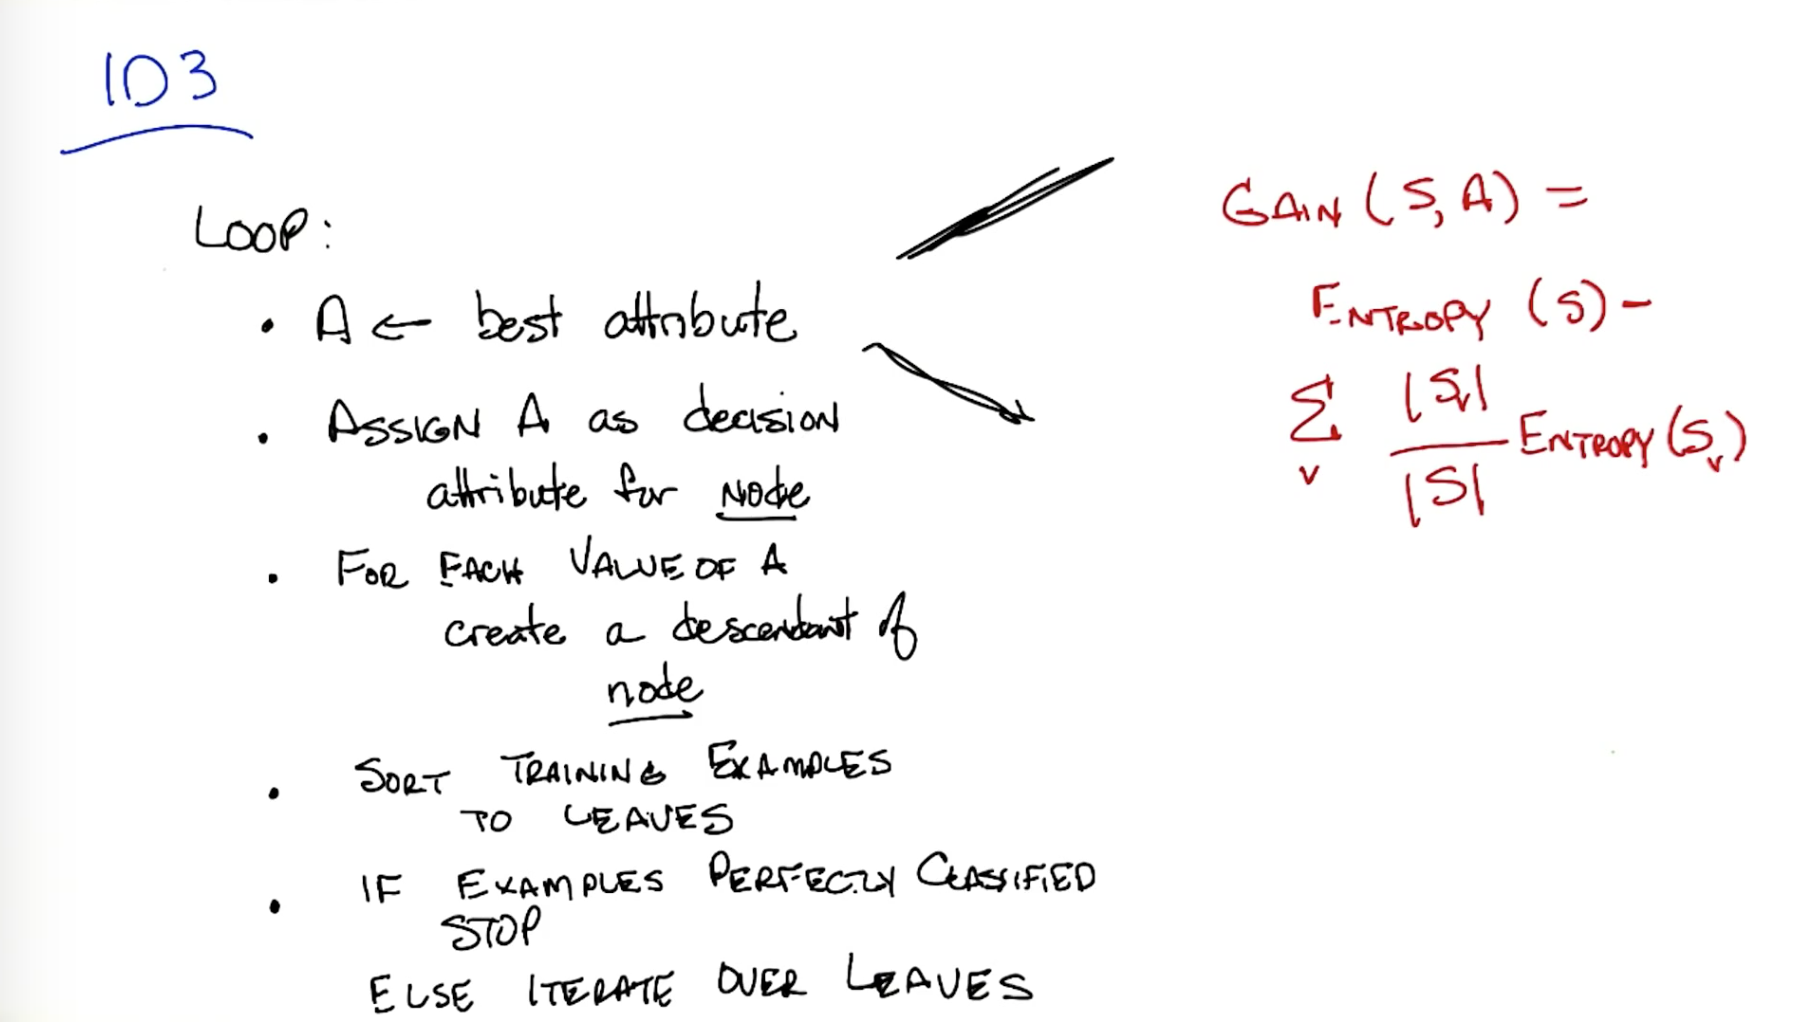 ID3
LOOP:
• A ← best attribute
• ASSIGN A as decision
attribute for NODE
• FOR EACH VALUE OF A
create a descendant of
node
• SORT TRAINING EXAMPLES
TO LEAVES
• IF EXAMPLES PERFECTLY CLASSIFIED
STOP
ELSE ITERATE OVER LEAVES
GAIN (S, A) =
ENTROPY (S) -
∑_v |S_v| / |S| ENTROPY (S_v)